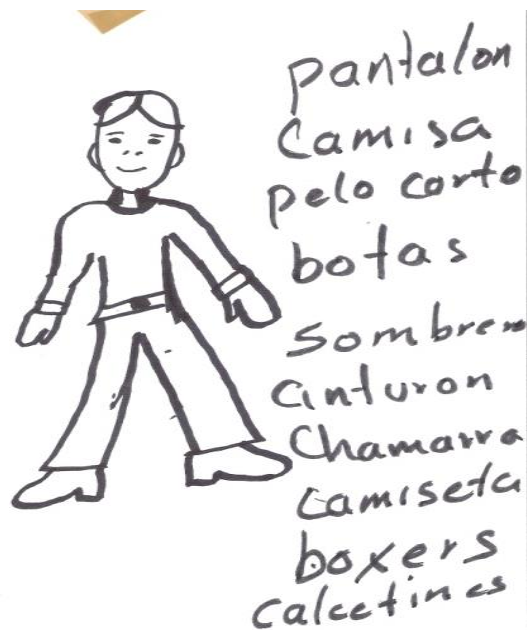 pantalon
Camisa
pelo corto
botas
Sombrero
Cinturon
Chamarra
Camiseta
boxers
Calcetines